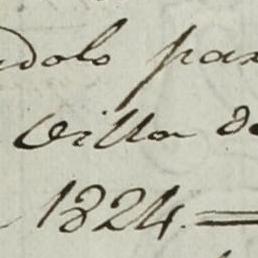 dolo par
Villa de
1824.=